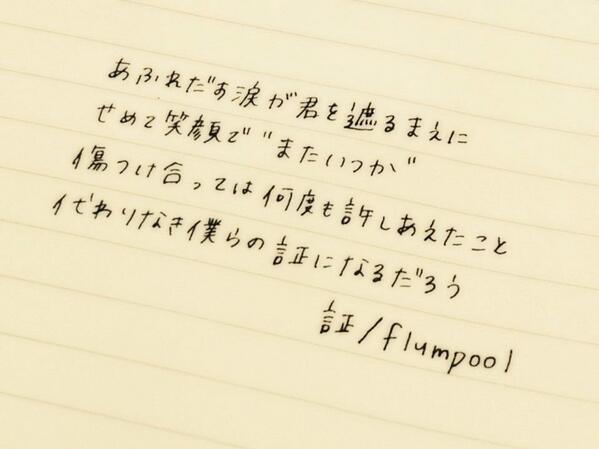 あふれだす涙が君を遮るまえに
せめて笑顔で"またいつか"
傷つけ合っては何度も許しあえたこと
代わりなき僕らの証になるだろう
証/flumpool